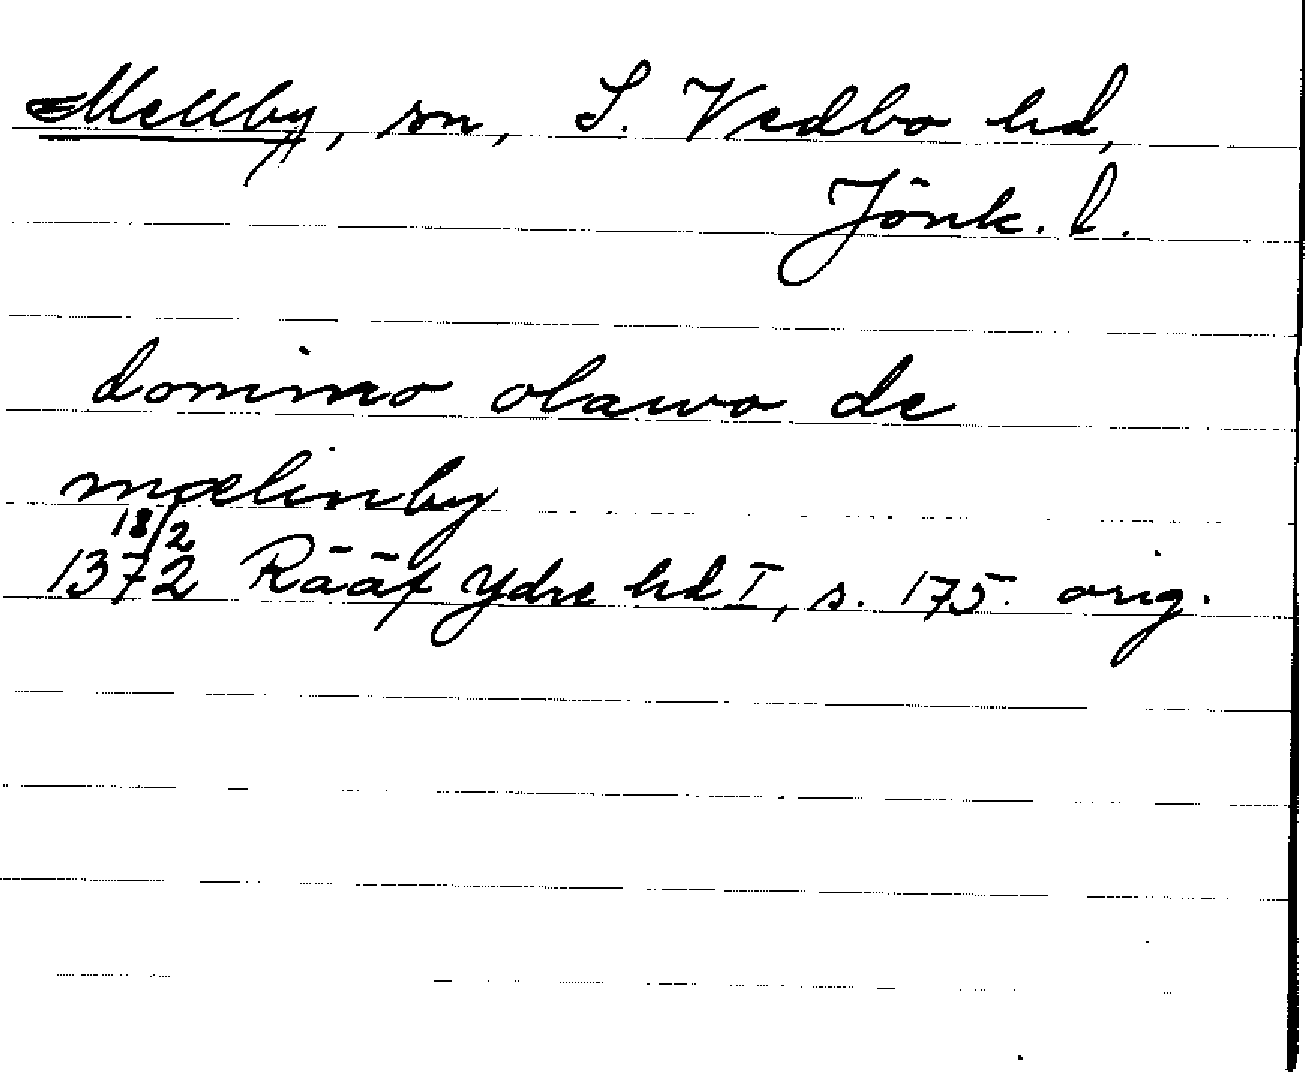 Mellby, sn, S. Vedbo hd,
Jönk. l.
domino olawo de
mælinby
18/2
1372 Rääf Ydre hd I, s. 175. orig.